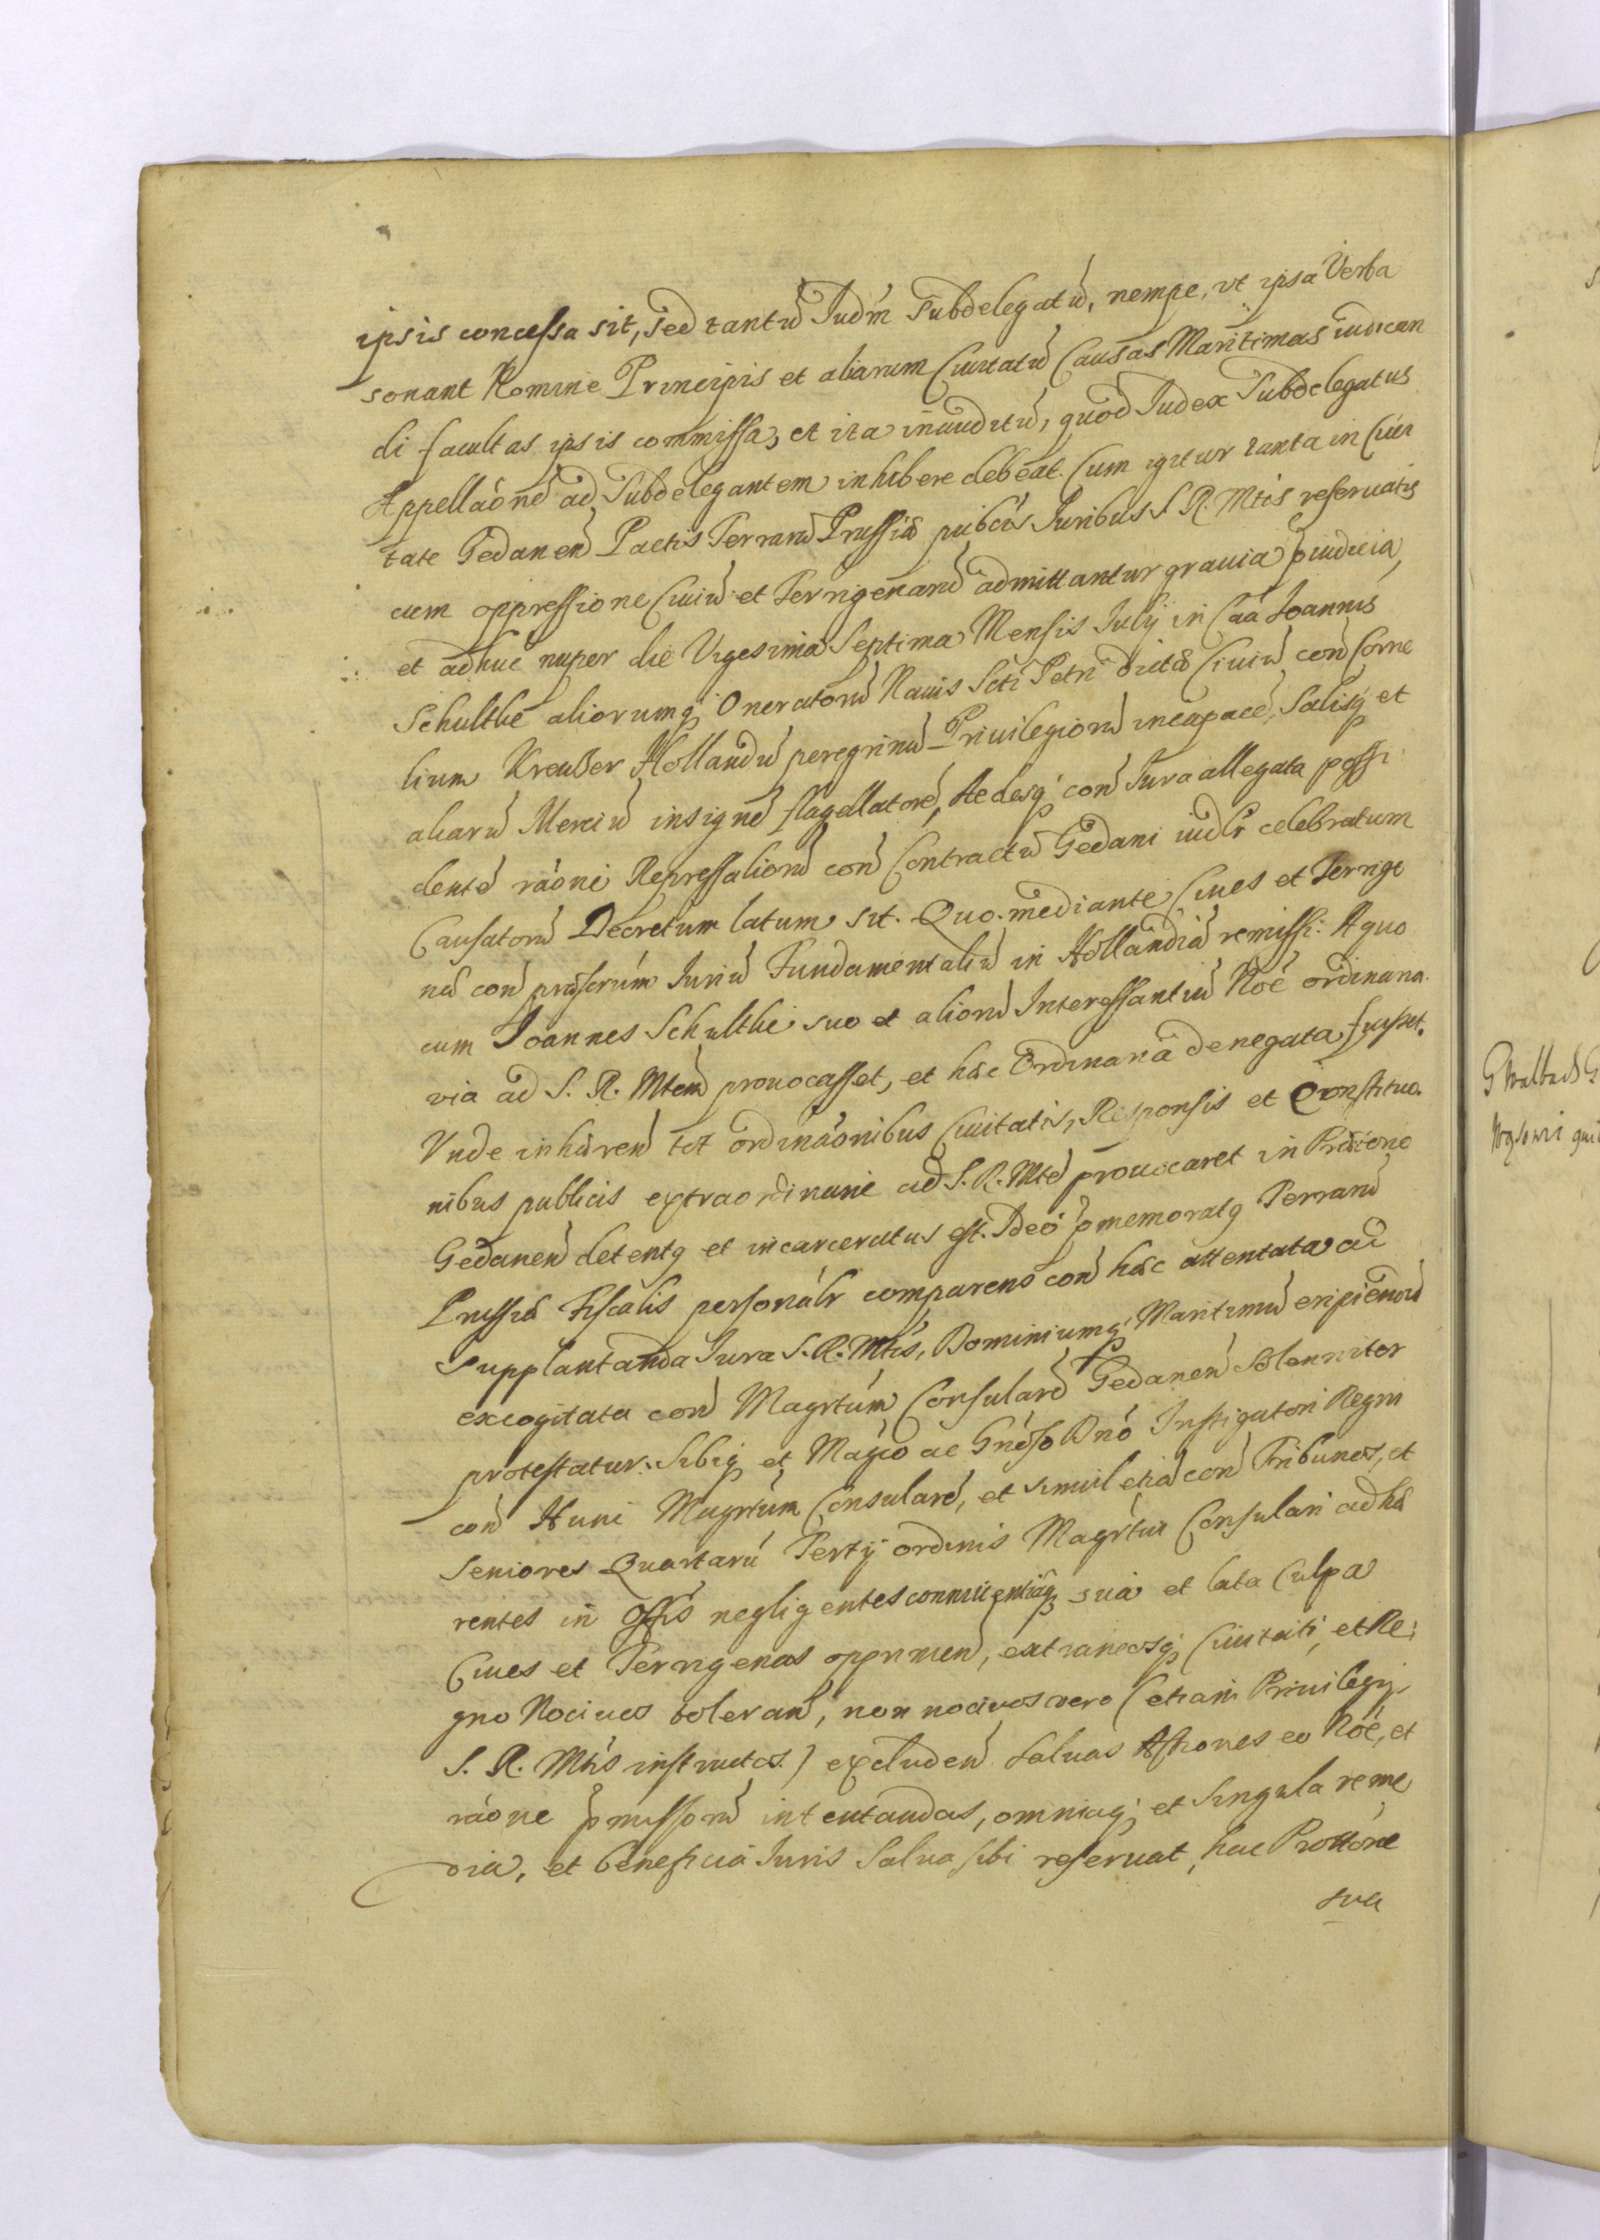 ipsis concessa sit, sed tantū Judm̄ Subdelegatū, nempe, ut ipsa Verba
sonant Nomine Principis et aliarum Ciuitatū Causas Maritimas iudican
di facultas ipsis commissa, et ita inauditū, quod Judex Subdelegatus
Appellãonē ad Subdelegantem inhibere debeat. Cum igitur tanta in Ciui
tate Gedanen̄ Pactis Terrarū Prussiæ publcis Juribus S. R. Mtis reseruatis
cum oppressione Ciuiū et Terrigenarū admittantur grauia p̄iudicia,
et adhuc nuper die Vigesima Septima Mensis Julij in Caã Joannis
Schulthe aliorumq; Oneratorū Nauis Scti Petri dictæ Ciuiū con̄ Corne
lium Kreuser Hollandū peregrinū Priuilegiorū incapacē, Salisq; et
aliarū Merciū insignē flagellatorē, Aedesq; con̄ Jura allegata possi
dentē rãone Repressaliorū con̄ Contractū Gedani iudlr celebratum
Causatorū Decretum latum sit. Quo mediante Ciues et Terrige
næ con̄ præscrm̄ Juriū Fundamentaliū in Hollandiā remissi. A quo
cum Joannes Schulthe suo et aliorū Interessantiū Noē ordinaria
via ad S. R. Mtem prouocasset, et hæc Ordinaria denegata fuisset.
Vnde inhæren̄ tot ordinãonibus Ciuitatis, Responsis et Constituo
nibus publicis extraordinarie ad S. R. Mtē prouocaret in Prætorio
Gedanen̄ detentq et incarceratus est. Ideo p̄memoratq Terrarū
Prussiæ Fiscalis personalr comparens con̄ hæc attentata ac
supplantanda Jura S. R. Mtis, Dominiumq; Maritimū eripiendū
excogitata con̄ Magrtum Consularē Gedanen̄ Solenniter
protestatur. Sibiq; et Magco ac Gnroso Dno Instigatori Regni
con̄ Hunc Magrtum Consularē, et simul etiā con̄ Tribunos, et
Seniores Quartarū Tertij ordinis Magrtui Consulari adhæ
rentes in Offis negligentes conniuentiaq; sua et lata Culpa
Ciues et Terrigenas opprimen̄, extraneosq; Ciuitati, et Re:
gno Nociuos toleran̄, non nociuos vero (etiam Priuilegijs
S. R. Mtis instructos) excluden̄ saluas Actiones eo Noē, et
rãone p̄missorū intentandas, omniaq; et singula reme
dia, et beneficia Juris Salua sibi reseruat, hac Prottõne
sua